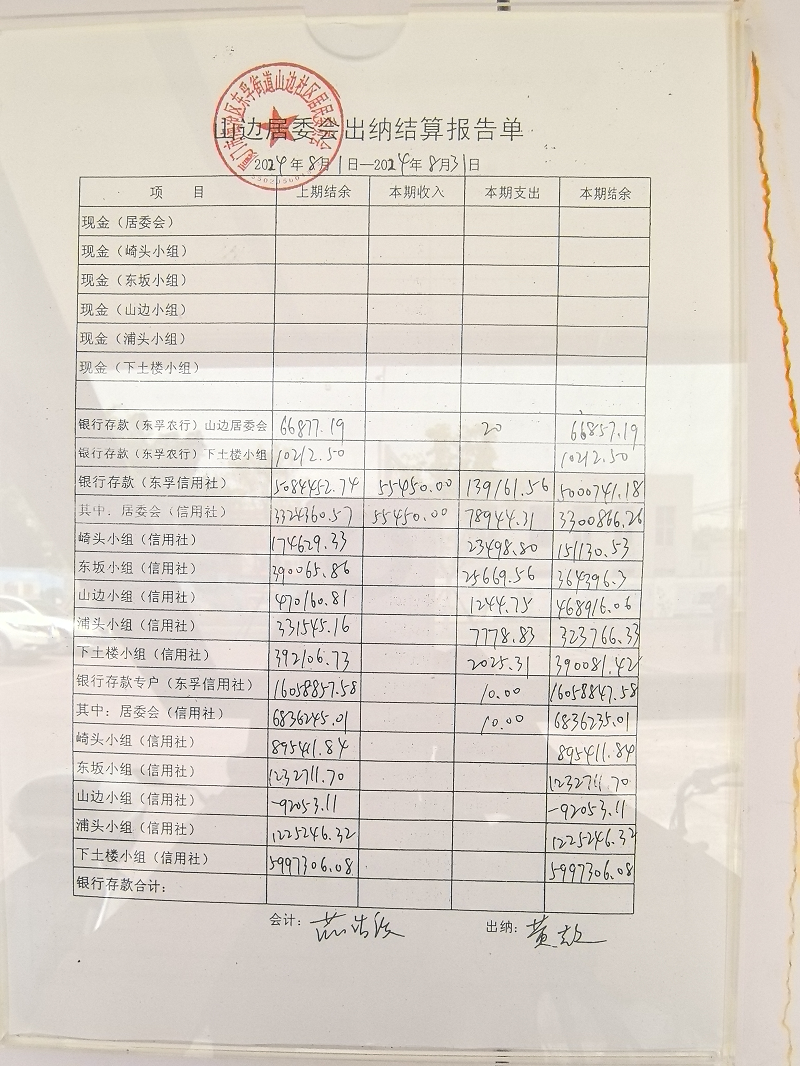 山边居委会出纳结算报告单
2024年8月1日—2024年8月31日
项 目 上期结余 本期收入 本期支出 本期结余
现金（居委会）
现金（崎头小组）
现金（东坂小组）
现金（山边小组）
现金（浦头小组）
现金（下土楼小组）
银行存款（东孚农行）山边居委会 66877.19 20 66857.19
银行存款（东孚农行）下土楼小组 10212.50 10212.50
银行存款（东孚信用社） 5084452.74 55450.00 139161.56 5000741.18
其中：居委会（信用社） 3324360.57 55450.00 78944.31 3300866.26
崎头小组（信用社） 174629.33 23498.80 151130.53
东坂小组（信用社） 390065.86 25669.56 364396.3
山边小组（信用社） 470160.81 1244.75 468916.06
浦头小组（信用社） 331545.16 7778.83 323766.33
下土楼小组（信用社） 392106.73 2025.31 390081.42
银行存款专户（东孚信用社） 16058857.58 10.00 16058847.58
其中：居委会（信用社） 6836245.01 10.00 6836235.01
崎头小组（信用社） 895411.84 895411.84
东坂小组（信用社） 1232711.70 1232711.70
山边小组（信用社） -92053.11 -92053.11
浦头小组（信用社） 1225246.32 1225246.32
下土楼小组（信用社） 5997306.08 5997306.08
银行存款合计：
会计： 出纳：黄